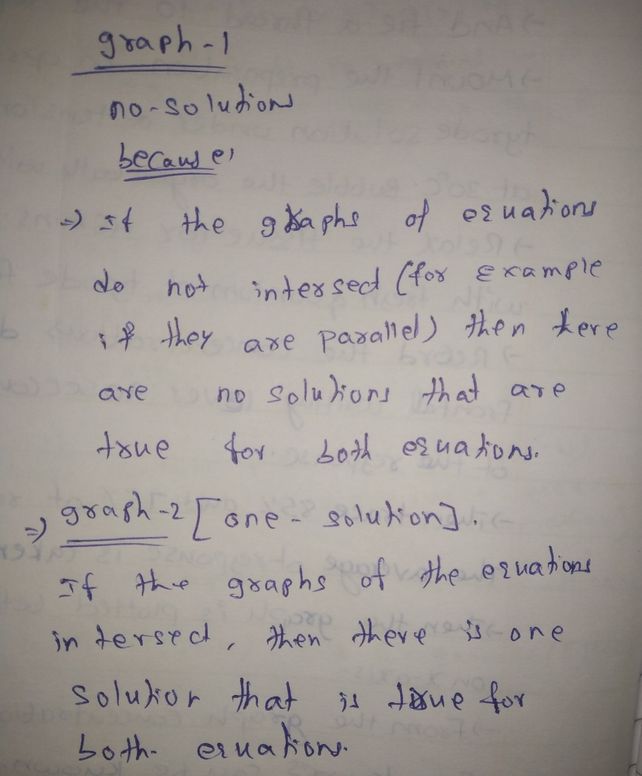 graph-1
no-solution
because,
⇒ If the graphs of equations
do not intersect (for Example
if they are parallel) then here
are no solutions that are
true for both equations.
⇒ graph-2 [one-solution].
If the graphs of the equations
intersect, then there is one
solution that is true for
both- equations.